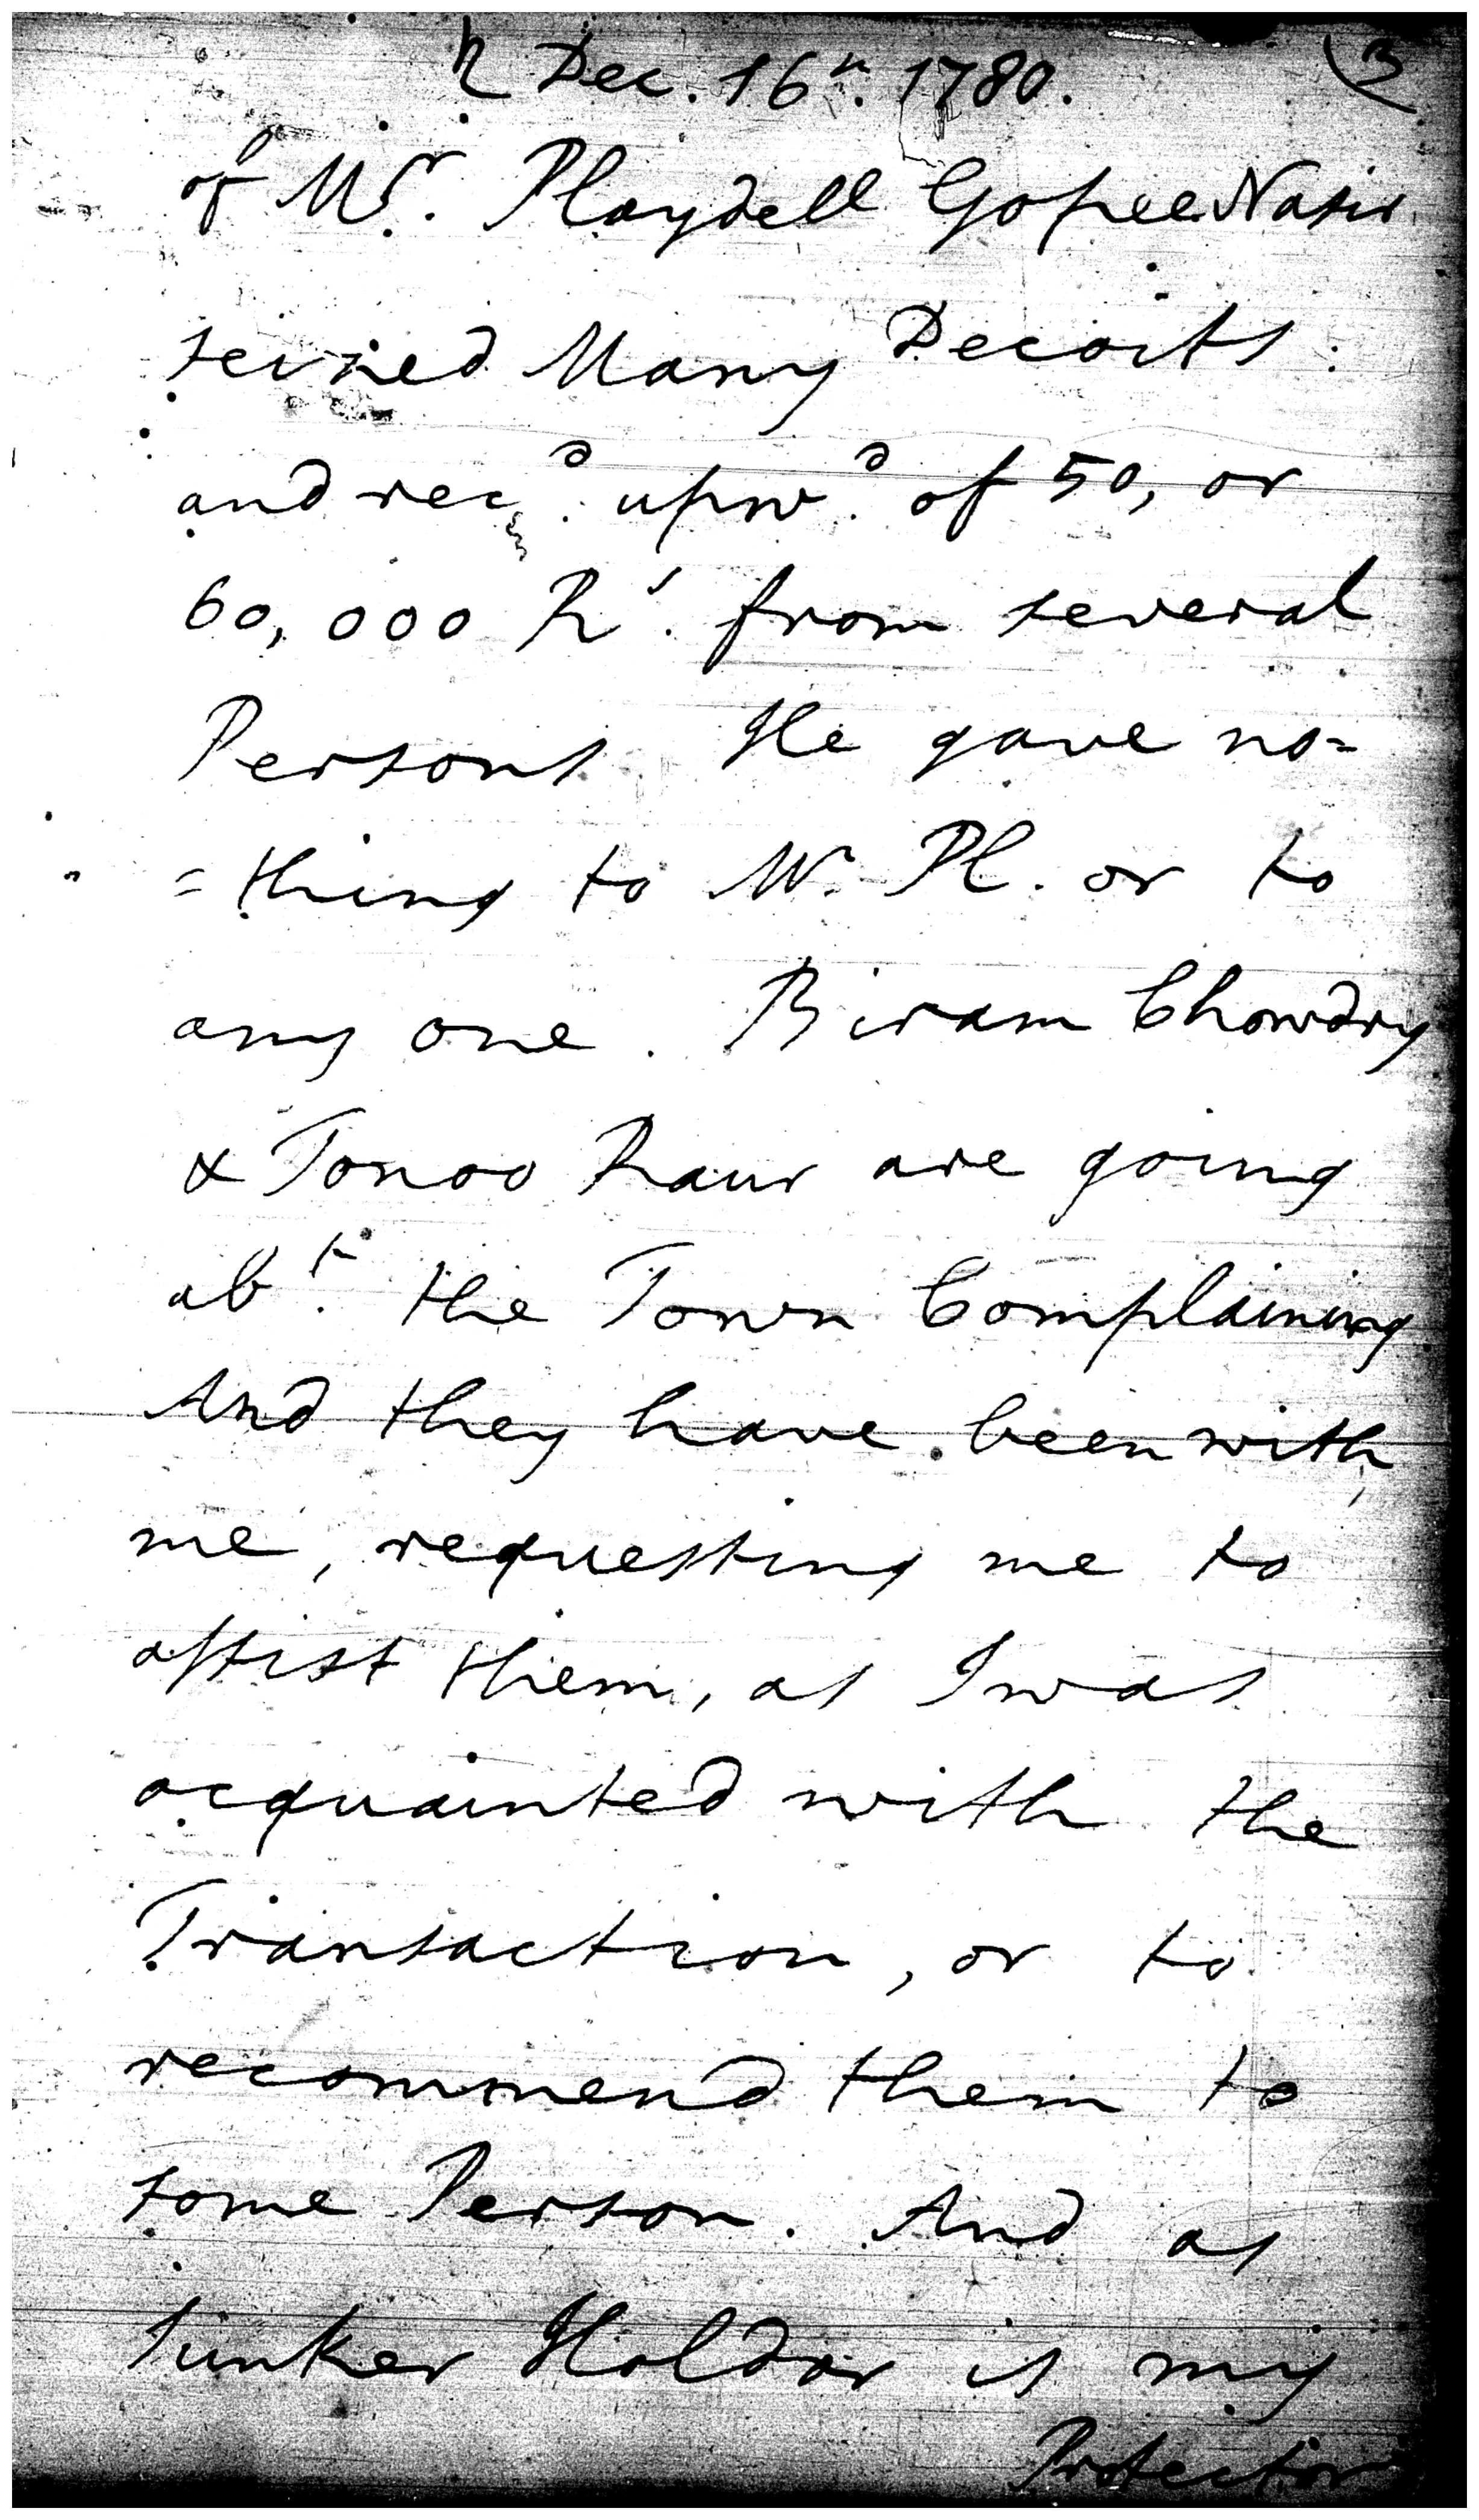 ♄ Dec. 16th. 1780.
of Mr. Playdell Gopee Nasir
seized Many Decoits.
and recd. upwd. of 50, or
60,000 Rs. from several
Persons He gave no=
=thing to Mr. Pl. or to
any one. Biram Chowdry
& Tonoo Raur are going
abt. the Town Complaining
And they have been with
me, requesting me to
assist them, as I was
acquainted with the
Transaction, or to
recommend them to
some Person. And as
Sunker Holdar is my
Protector